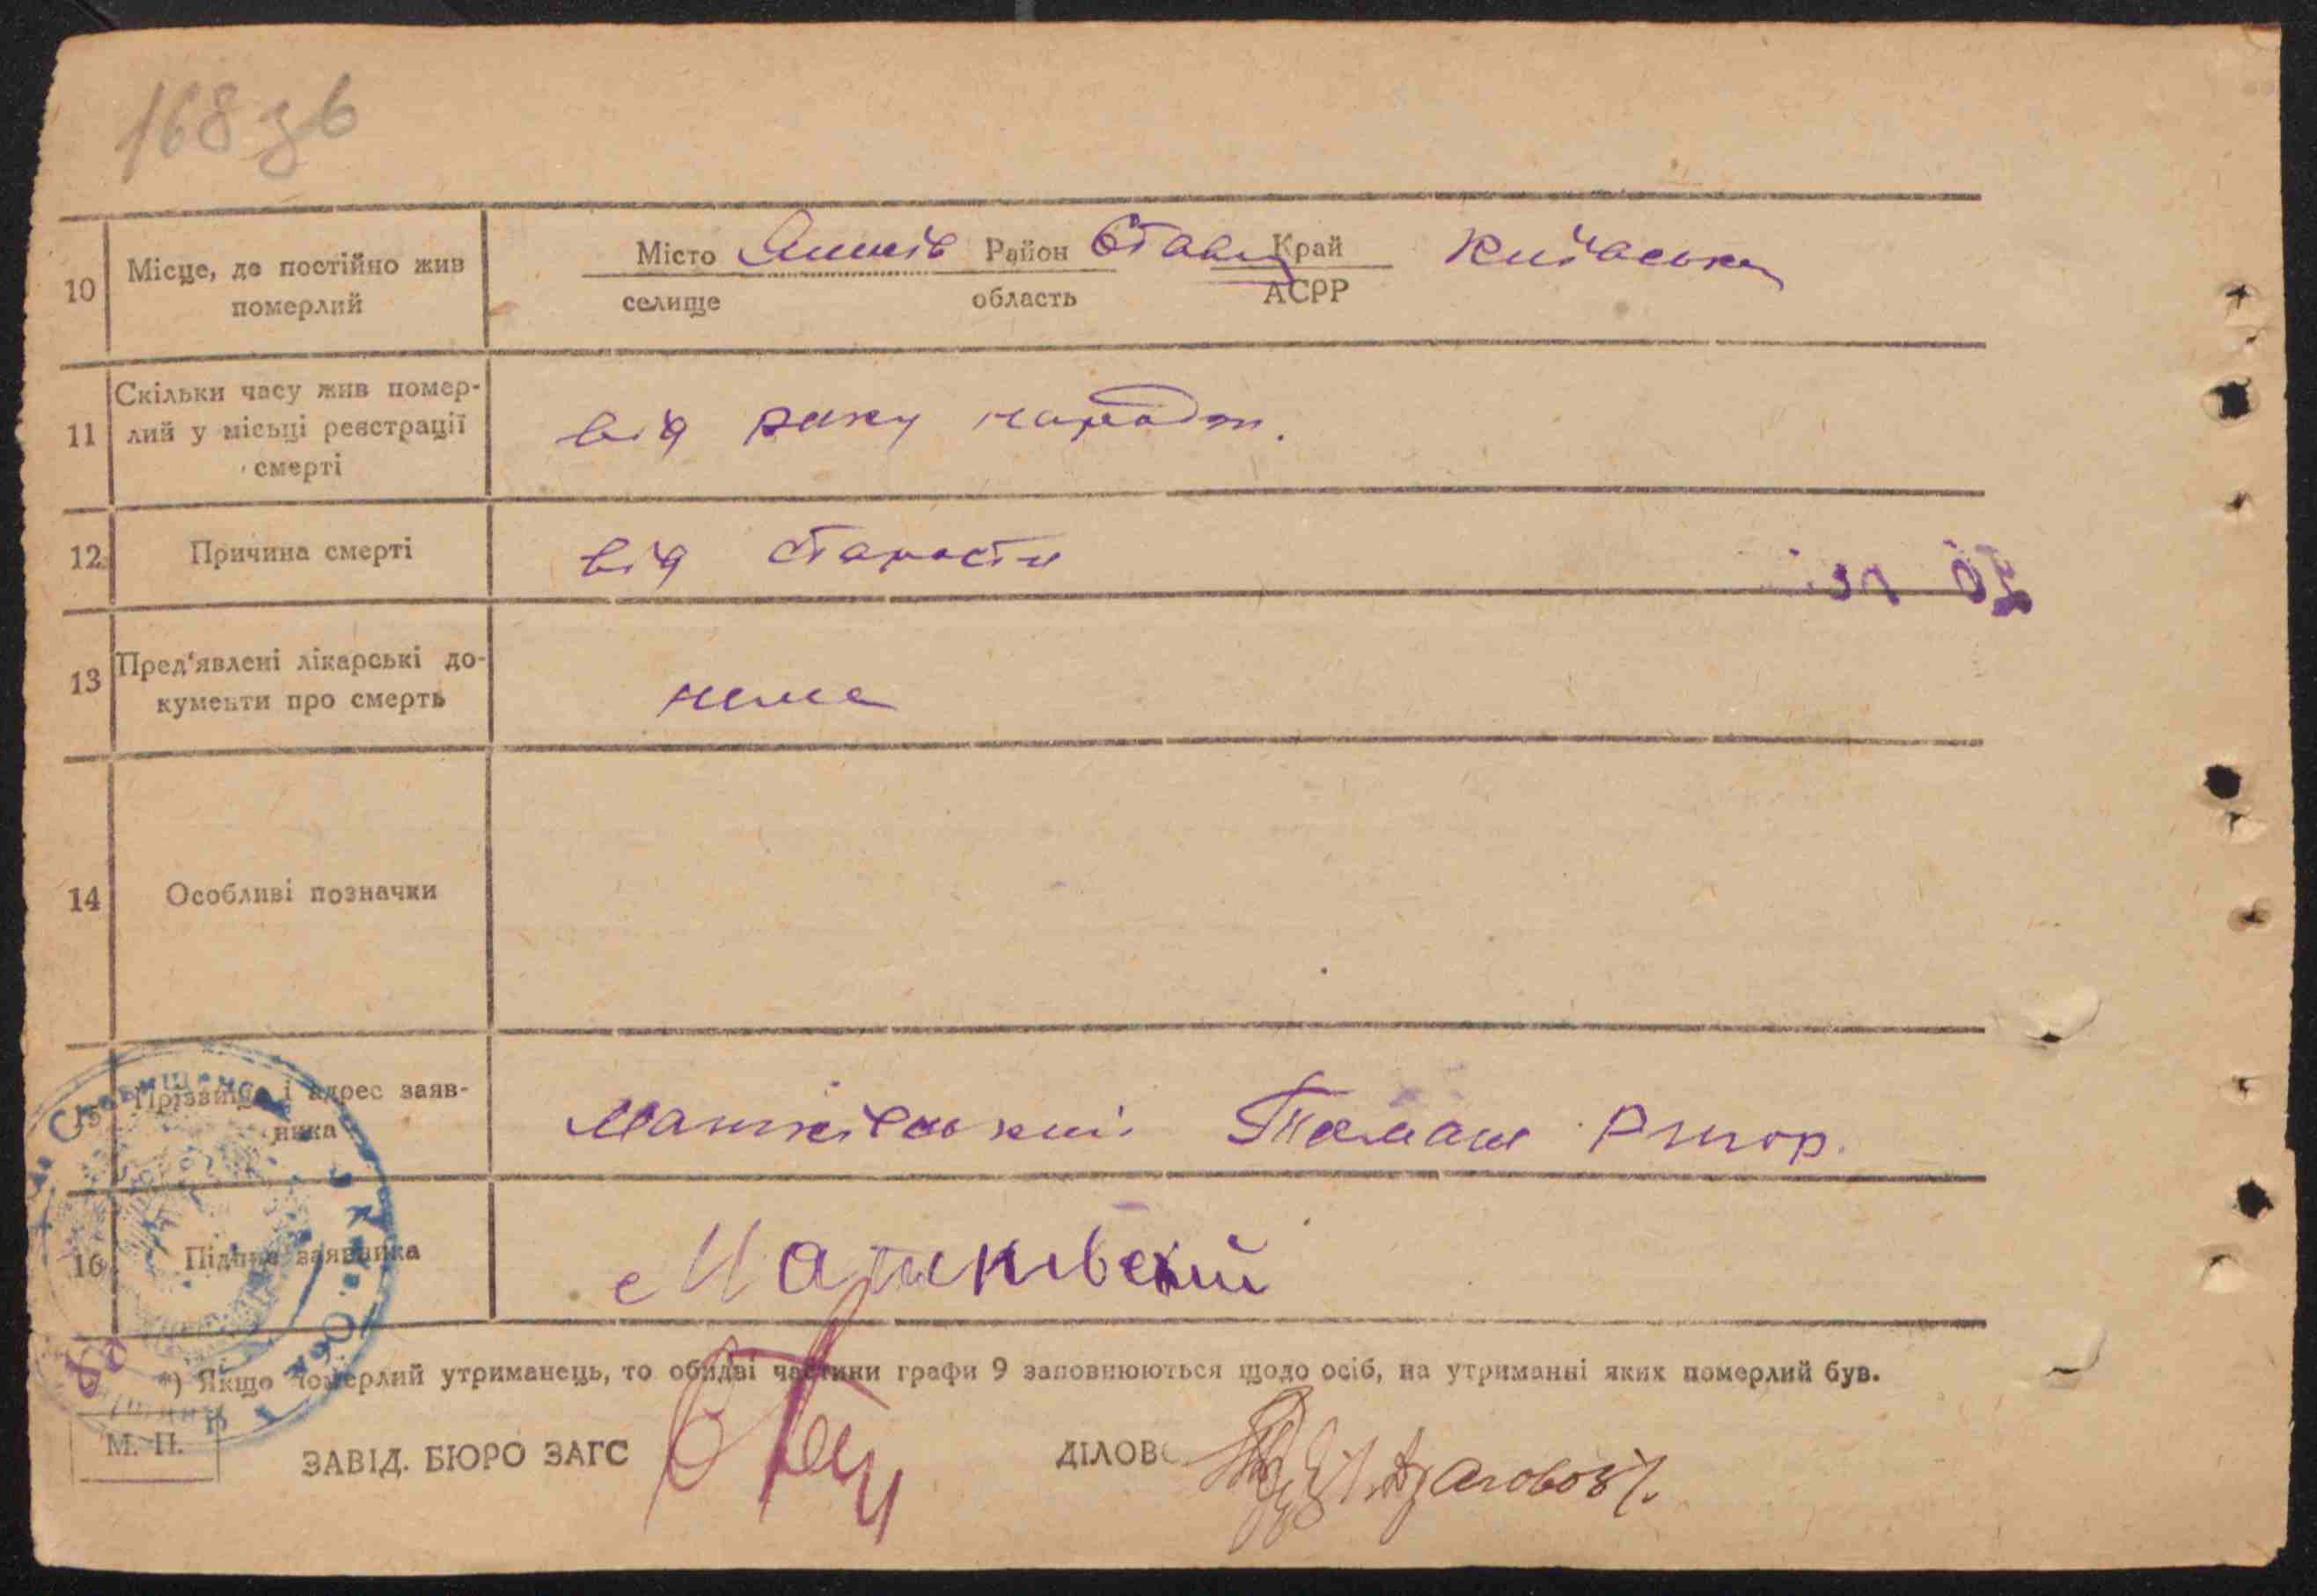 168 зв
10 Місце, де постійно жив померлий
Місто Район Став Край Київська
селище область АСРР
11 Скільки часу жив помер-
лий у місьці реєстрації
смерті
від року народж.
12 Причина смерті від старости
13 Пред'явлені лікарські до-
кументи про смерть
нема
14 Особливі позначки
15 Прізвище і адрес заяв-
ника
Машківський Томаш Григор.
16 Підпис заявника
Машківский
*) Якщо померлий утриманець, то обидві частини графи 9 заповнюються щодо осіб, на утриманні яких померлий був.
М. П.
ЗАВІД. БЮРО ЗАГС ДІЛОВ